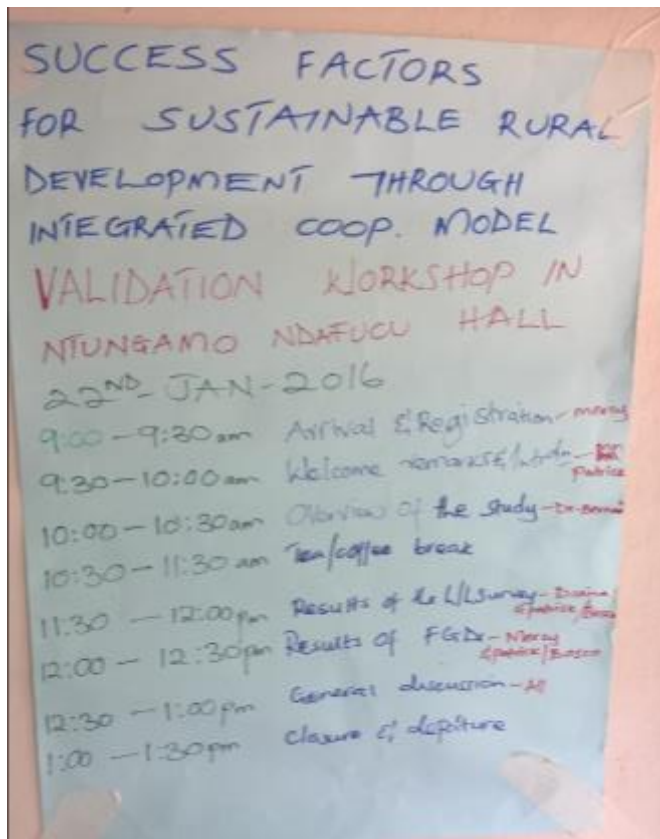 SUCCESS FACTORS
FOR SUSTAINABLE RURAL
DEVELOPMENT THROUGH
INTEGRATED COOP. MODEL
VALIDATION WORKSHOP IN
NTUNGAMO NDAFUCU HALL
22ND-JAN-2016
9:00-9:30am Arrival & Registration - Mercy
9:30-10:00am Welcome remarks & - Patrice
10:00-10:30am Overview of the study - Dr.
10:30-11:30am Tea/coffee break
11:30-12:00pm Results of the survey -
12:00-12:30pm Results of FGDs - Mercy
/Bosco
12:30-1:00pm General discussion - All
1:00-1:30pm Closure & depature